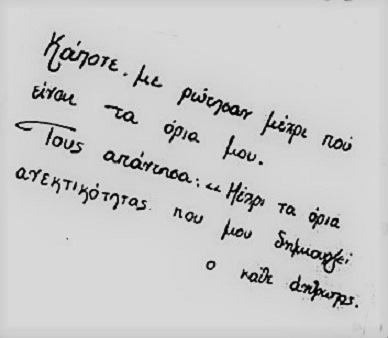 Κάποτε. με ρώτησαν μέχρι πού
είναι τα όρια μου.
Τους απάντησα: "Μέχρι τα όρια
ανεκτικότητας που μου δημιουργεί
ο κάθε άνθρωπος.